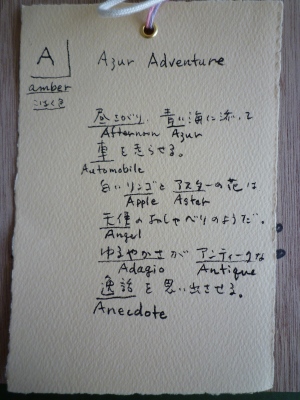 A
Azur Adventure
amber
こはく色
昼さがり、青い海に添って
Afternoon Azur
車を走らせる。
Automobile
白いリンゴとアスターの花は
Apple Aster
天使のおしゃべりのようだ。
Angel
ゆるやかさが アンティークな
Adagio Antique
逸話を思い出させる。
Anecdote